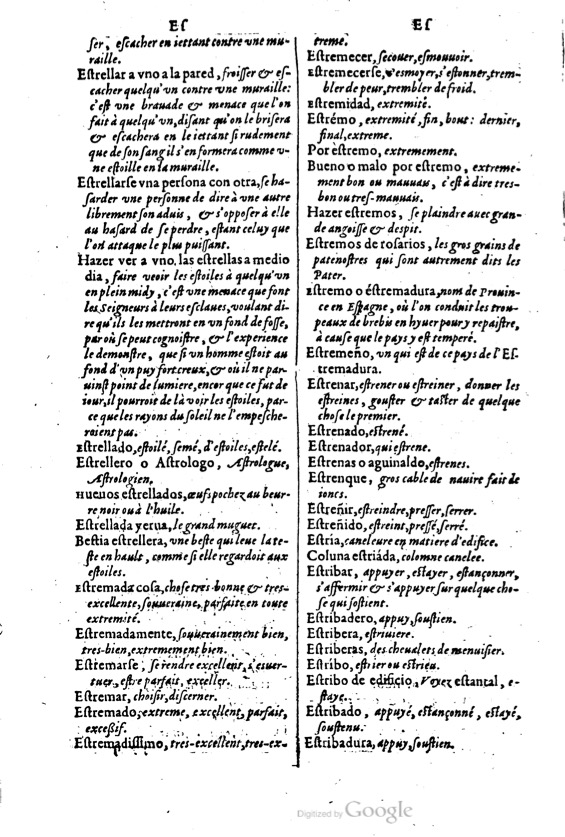 Eſ
ſer, eſcacher en iettant contre vne mu-
raille.
Eſtrellar a vno a la pared, froiſſer & eſ-
cacher quelqu'vn contre vne muraille:
c'eſt vne brauade & menace que l'on
fait à quelqu'vn, diſant qu'on le briſera
& eſcachera en le iettant ſi rudement
que de ſon ſang il s'en formera comme v-
ne eſtoille en la muraille.
Eſtrellarſe vna perſona con otra, ſe ha-
ſarder vne perſonne de dire à vne autre
librement ſon aduis, & s'oppoſer à elle
au haſard de ſe perdre, eſtant celuy que
l'on attaque le plus puiſſant.
Hazer ver a vno, las eſtrellas a medio
dia, faire veoir les eſtoiles à quelqu'vn
en plein midy, c'eſt vne menace que font
les Seigneurs à leurs eſclaues, voulant di-
re qu'ils les mettront en vn fond de foſſe,
par où ſe peut cognoiſtre, & l'experience
le demonſtre, que ſi vn homme eſtoit au
fond d'vn puy fort creux, & où il ne par-
uinſt point de lumiere, encor que ce fut de
iour, il pourroit de là voir les eſtoiles, par-
ce que les rayons du ſoleil ne l'empeſche-
roient pas.
Eſtrellado, eſtoilé, ſemé, d'eſtoiles, eſtelé.
Eſtrellero o Aſtrologo, Aſtrologue,
Aſtrologien.
Hueuos eſtrellados, œufs pochez au beur-
re noir ou à l'huile.
Eſtrellada yerua, le grand muguet.
Beſtia eſtrellera, vne beſte qui leue la te-
ſte en hault, comme ſi elle regardoit aux
eſtoiles.
Eſtremada coſa, choſe tres-bonne & tres-
excellente, ſouueraine, parfaite en toute
extremité.
Eſtremadamente, ſouuerainement bien,
tres-bien, extremement bien.
Eſtremarſe, ſe rendre excellent, s'euer-
tuer, eſtre parfait, exceller.
Eſtremar, choiſir, diſcerner.
Eſtremado, extreme, excellent, parfait,
exceßif.
Eſtremadiſſimo, tres-excellent, tres-ex-
Eſ
treme.
Eſtremecer, ſecouer, eſmouuoir.
Eſtremecerſe, s'eſmoyer, s'eſtonner, trem-
bler de peur, trembler de froid.
Eſtremidad, extremité.
Eſtrémo, extremité, fin, bout: dernier,
final, extreme.
Por eſtremo, extremement.
Bueno o malo por eſtremo, extreme-
ment bon ou mauuau, c'eſt à dire tres-
bon ou treſ-mauuais.
Hazer eſtremos, ſe plaindre auec gran-
de angoiſſe & deſpit.
Eſtremos de roſarios, les gros grains de
patenoſtres qui ſont autrement dits les
Pater.
Eſtremo o éſtremadura, nom de Prouin-
ce en Eſpagne, où l'on conduit les trou-
peaux de brebis en hyuer pour y repaiſtre,
à cauſe que le pays y eſt temperé.
Eſtremeño, vn qui eſt de ce pays de l'Eſ-
tremadura.
Eſtrenar, eſtrener ou eſtreiner, donner les
eſtreines, gouſter & taſter de quelque
choſe le premier.
Eſtrenado, eſtrené.
Eſtrenador, qui eſtrene.
Eſtrenas o aguinaldo, eſtrenes.
Eſtrenque, gros cable de nauire fait de
ioncs.
Eſtreñir, eſtreindre, preſſer, ſerrer.
Eſtreñido, eſtreint, preſſé, ſerré.
Eſtria, caneleure en matiere d'edifice.
Coluna eſtriáda, colomne canelee.
Eſtribar, appuyer, eſtayer, eſtançonner,
s'affermir & s'appuyer ſur quelque cho-
ſe qui ſoſtient.
Eſtribadero, appuy, ſouſtien.
Eſtribera, eſtriuiere.
Eſtriberas, des cheualets de menuiſier.
Eſtribo, eſtrier ou eſtrieu.
Eſtribo de edificio, Voyez eſtantal, e-
ſtaye.
Eſtribado, appuyé, eſtançonné, eſtayé,
ſouſtenu.
Eſtribadura, appuy, ſouſtien.
Digitized by Google